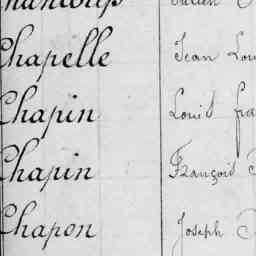 Chapelle Jean Lou
Chapin Louis fra
Chapin François
Chapon Joseph